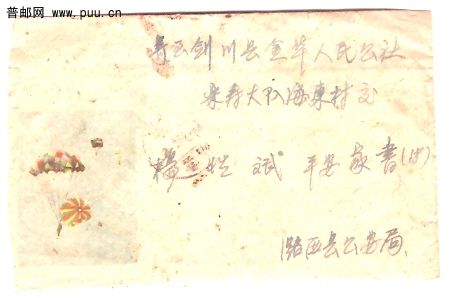 普邮网 www.puu.cn
寄云剑川县金华人民公社
来寿大队海东村交
杨 斌 平安家書
潞西县公安局